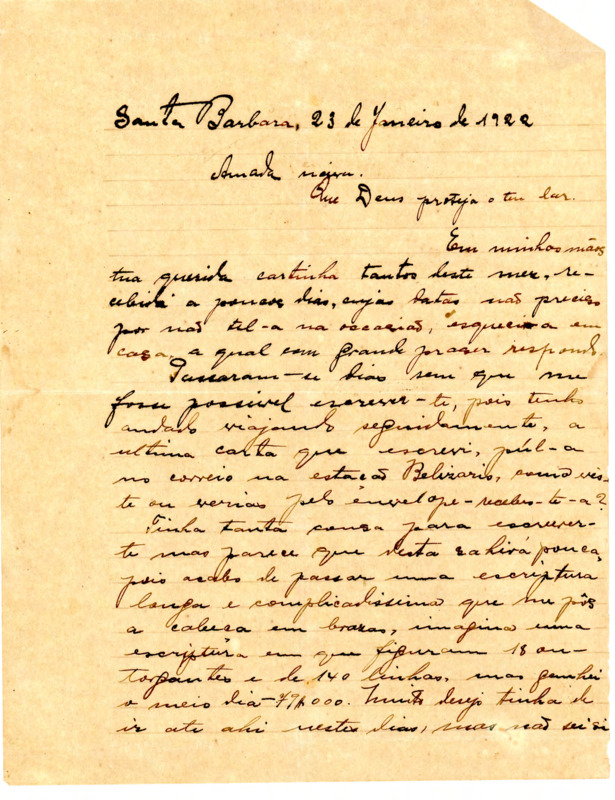 Santa Barbara, 23 de Janeiro de 1922
Amada noiva.
Que Deus proteja o teu lar.
Em minhas mãos
tua querida cartinha tantos deste mez, re-
cebida a poucos dias, cujas datas não preciso
por não tel-a na occasião, esqueci-a em
casa, a qual com grande praser respondo.
Passaram-se dias sem que me
fosse possivel escrever-te, pois tenho
andado viajando seguidamente, a
ultima carta que escrevi, púl-a
no correio na estação Belizario, como vis-
te ou verias pelo envelope-recebes-te-a?
Tinha tanta cousa para escrever-
te mas parece que desta sahirá pouca,
pois acabo de passar uma escriptura
longa e complicadissima que me pôs
a cabeça em brazas, imagina uma
escriptura em que figuram 18 ou-
torgantes e de 140 linhas, mas ganhei
o meio dia-79$000. Muito desejo tinha de
ir até ahi nestes dias, mas não sei si